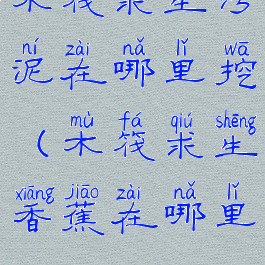 木筏求生污
ní zài nǎ lǐ wā
泥在哪里挖
mù fá qiú shēng
（木筏求生
xiāng jiāo zài nǎ lǐ
香蕉在哪里